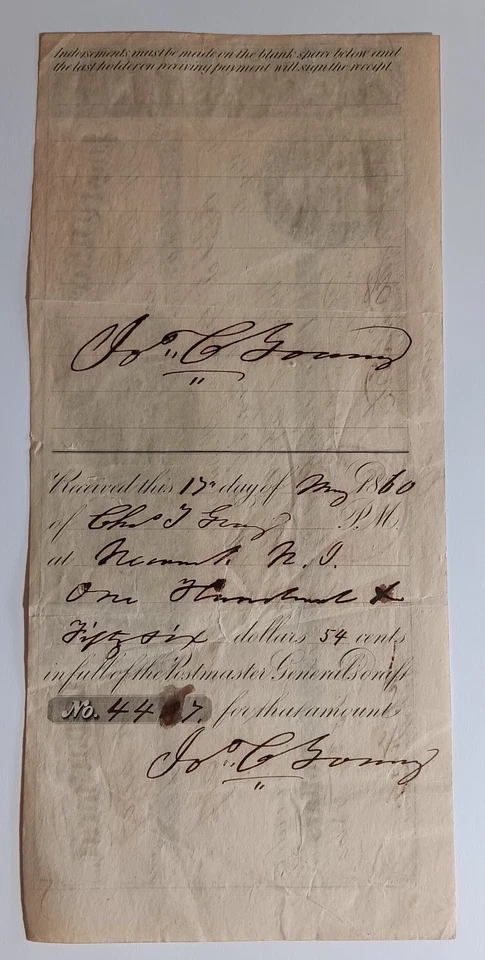 Indorsements must be made on the blank space below and
the last holder on receiving payment will sign the receipt.
Jno. C Young
Received this 17th day of May 1860
of Chas T Gray P.M.
at Newark N. J.
One Hundred &
Fifty six dollars 54 cents
in full of the Postmaster General's draft
No. 44 7. for that amount
Jno. C Young